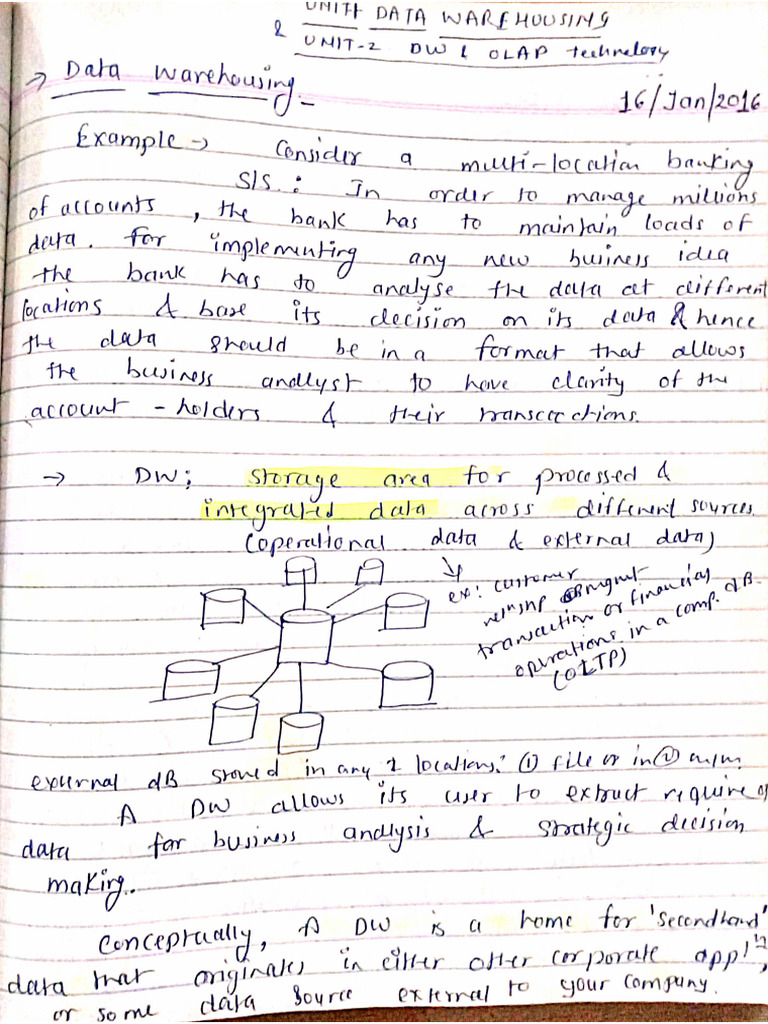 UNIT1 DATA WAREHOUSING
& UNIT-2 DW & OLAP technology
→ Data Warehousing -
16/Jan/2016
Example → Consider a multi-location banking
S/S.: In order to manage millions
of accounts, the bank has to maintain loads of
data. for implementing any new business idea
the bank has to analyse the data at different
locations & base its decision on its data & hence
the data should be in a format that allows
the business analyst to have clarity of the
account-holders & their transactions.
→ DW; storage area for processed &
integrated data across different sources
(operational data & external data)
ex: customer
mgmt
transaction or financial
operations in a comp. dB.
(OLTP)
external dB stored in any 2 locations: ① file or in ② m/m.
A DW allows its user to extract require of
data for business analysis & strategic decision
making.
Conceptually, A DW is a home for 'secondhand'
data that originates in either other corporate appln,
or some data source external to your company.